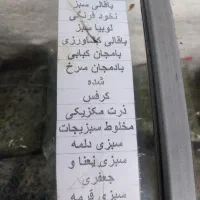 باقالی سبز
نخود فرنگی
لوبیا سبز
باقالی کشاورزی
بامجان کبابی
بادمجان سرخ
شده
کرفس
ذرت مکزیکی
مخلوط سبزیجات
سبزی دلمه
سبزی نعنا و
جعفری
سبزی قرمه